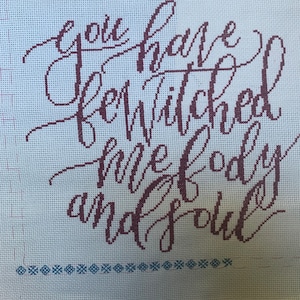 you have
bewitched
me body
and soul